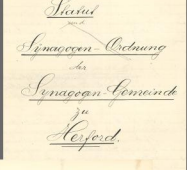 Statut
und
Synagogen-Ordnung
der
Synagogen-Gemeinde
zu
Herford.